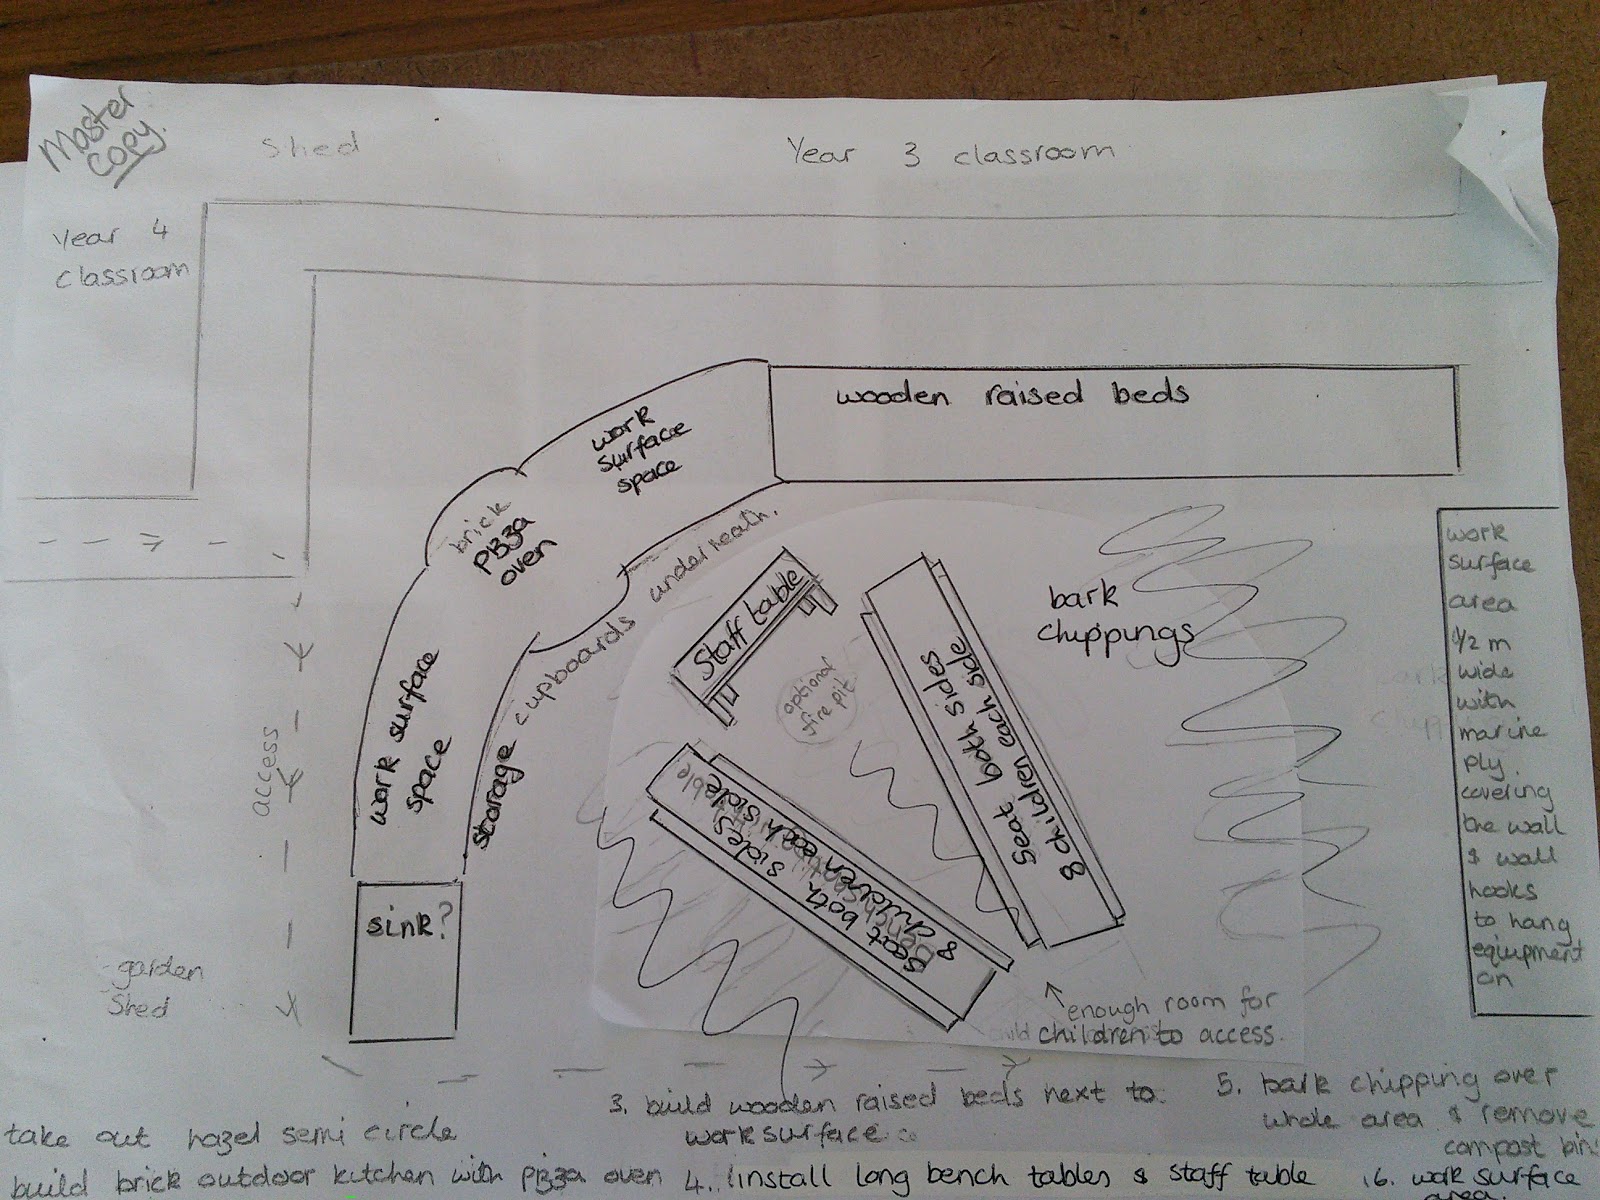 Master
copy.
Shed
Year 3 classroom
Year 4
classroom
wooden raised beds
work
surface
space
brick
PIzza
oven
work surface
space
storage cupboards underneath.
Staff table
optional
fire pit.
seat both sides
8 children each side
seat both sides
8 children each side
bark
chippings
work
surface
area
1/2 m
wide
with
marine
ply.
covering
the wall
& wall
hooks
to hang
equipment
on
access
sink?
garden
Shed
enough room for
children to access.
take out hazel semi circle
build brick outdoor kitchen with pizza oven
3. build wooden raised beds next to
work surface
4. install long bench tables & staff table
5. bark chipping over
whole area & remove
compost bins
6. work surface
area.